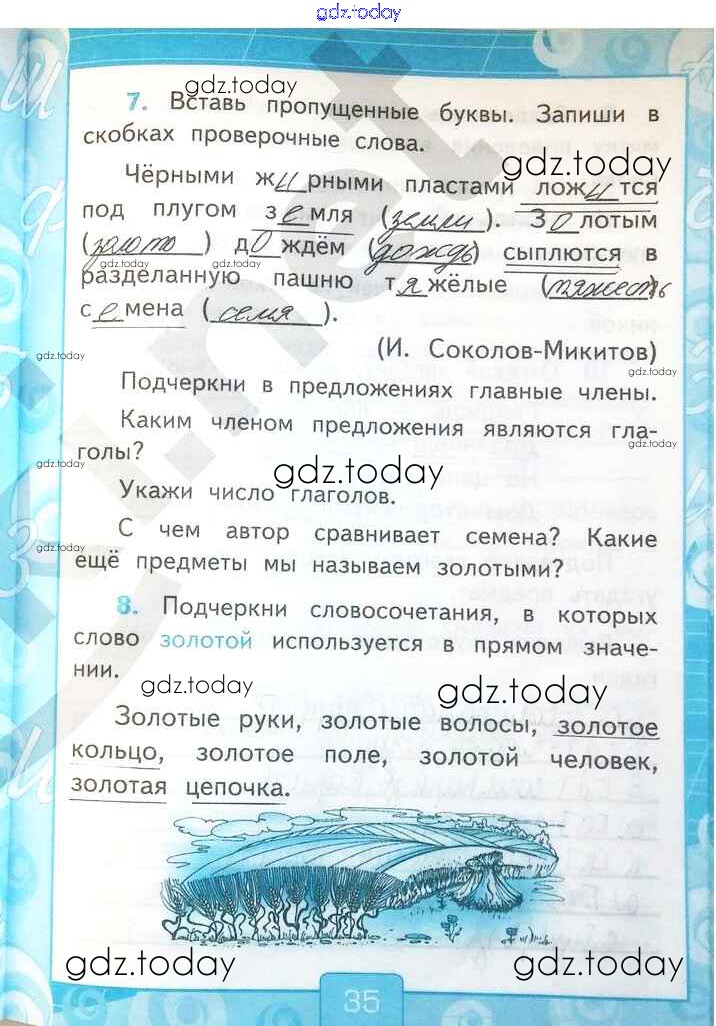 gdz.today
gdz.today
7. Вставь пропущенные буквы. Запиши в
скобках проверочные слова.
gdz.today
Чёрными жирными пластами ложится
под плугом земля (земли). Золотым
(золото) дождём (дождь) сыплются в
gdz.today gdz.today
разделанную пашню тяжёлые (тяжесть)
семена (семя).
(И. Соколов-Микитов)
gdz.today
gdz.today
Подчеркни в предложениях главные члены.
Каким членом предложения являются гла-
gdz.today
голы?
gdz.today
gdz.today
Укажи число глаголов.
С чем автор сравнивает семена? Какие
gdz.today
ещё предметы мы называем золотыми?
8. Подчеркни словосочетания, в которых
слово золотой используется в прямом значе-
нии.
gdz.today
gdz.today
Золотые руки, золотые волосы, золотое
кольцо, золотое поле, золотой человек,
золотая цепочка.
gdz.today
gdz.today
35